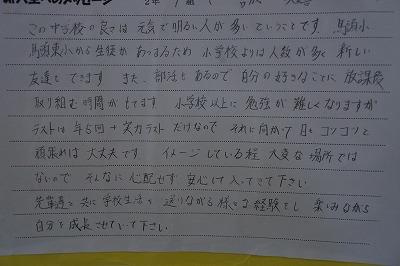 新入生へのメッセージ 2年 組
この中学校の良さは元気で明るい人が多いということです。馬頭小
馬頭東小から生徒があつまるため 小学校よりは人数が多く 新しい
友達もできます。また、部活もあるので自分の好きなことに放課後
取り組む時間がもてます。小学校以上に勉強が難しくなりますが
テストは年5回+実力テストだけなので それに向かって日々コツコツと
頑張れば大丈夫です。イメージしている程 大変な場所では
ないので そんなに心配せず安心して入ってきて下さい
先輩達と共に学校生活を送りながら様々な経験をし 楽しみながら
自分を成長させていって下さい。